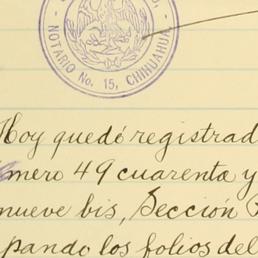 NOTARIO No. 15, CHIHUAHUA
Hoy quedó registrad
mero 49 cuarenta y
nueve bis, Sección
pando los folios del